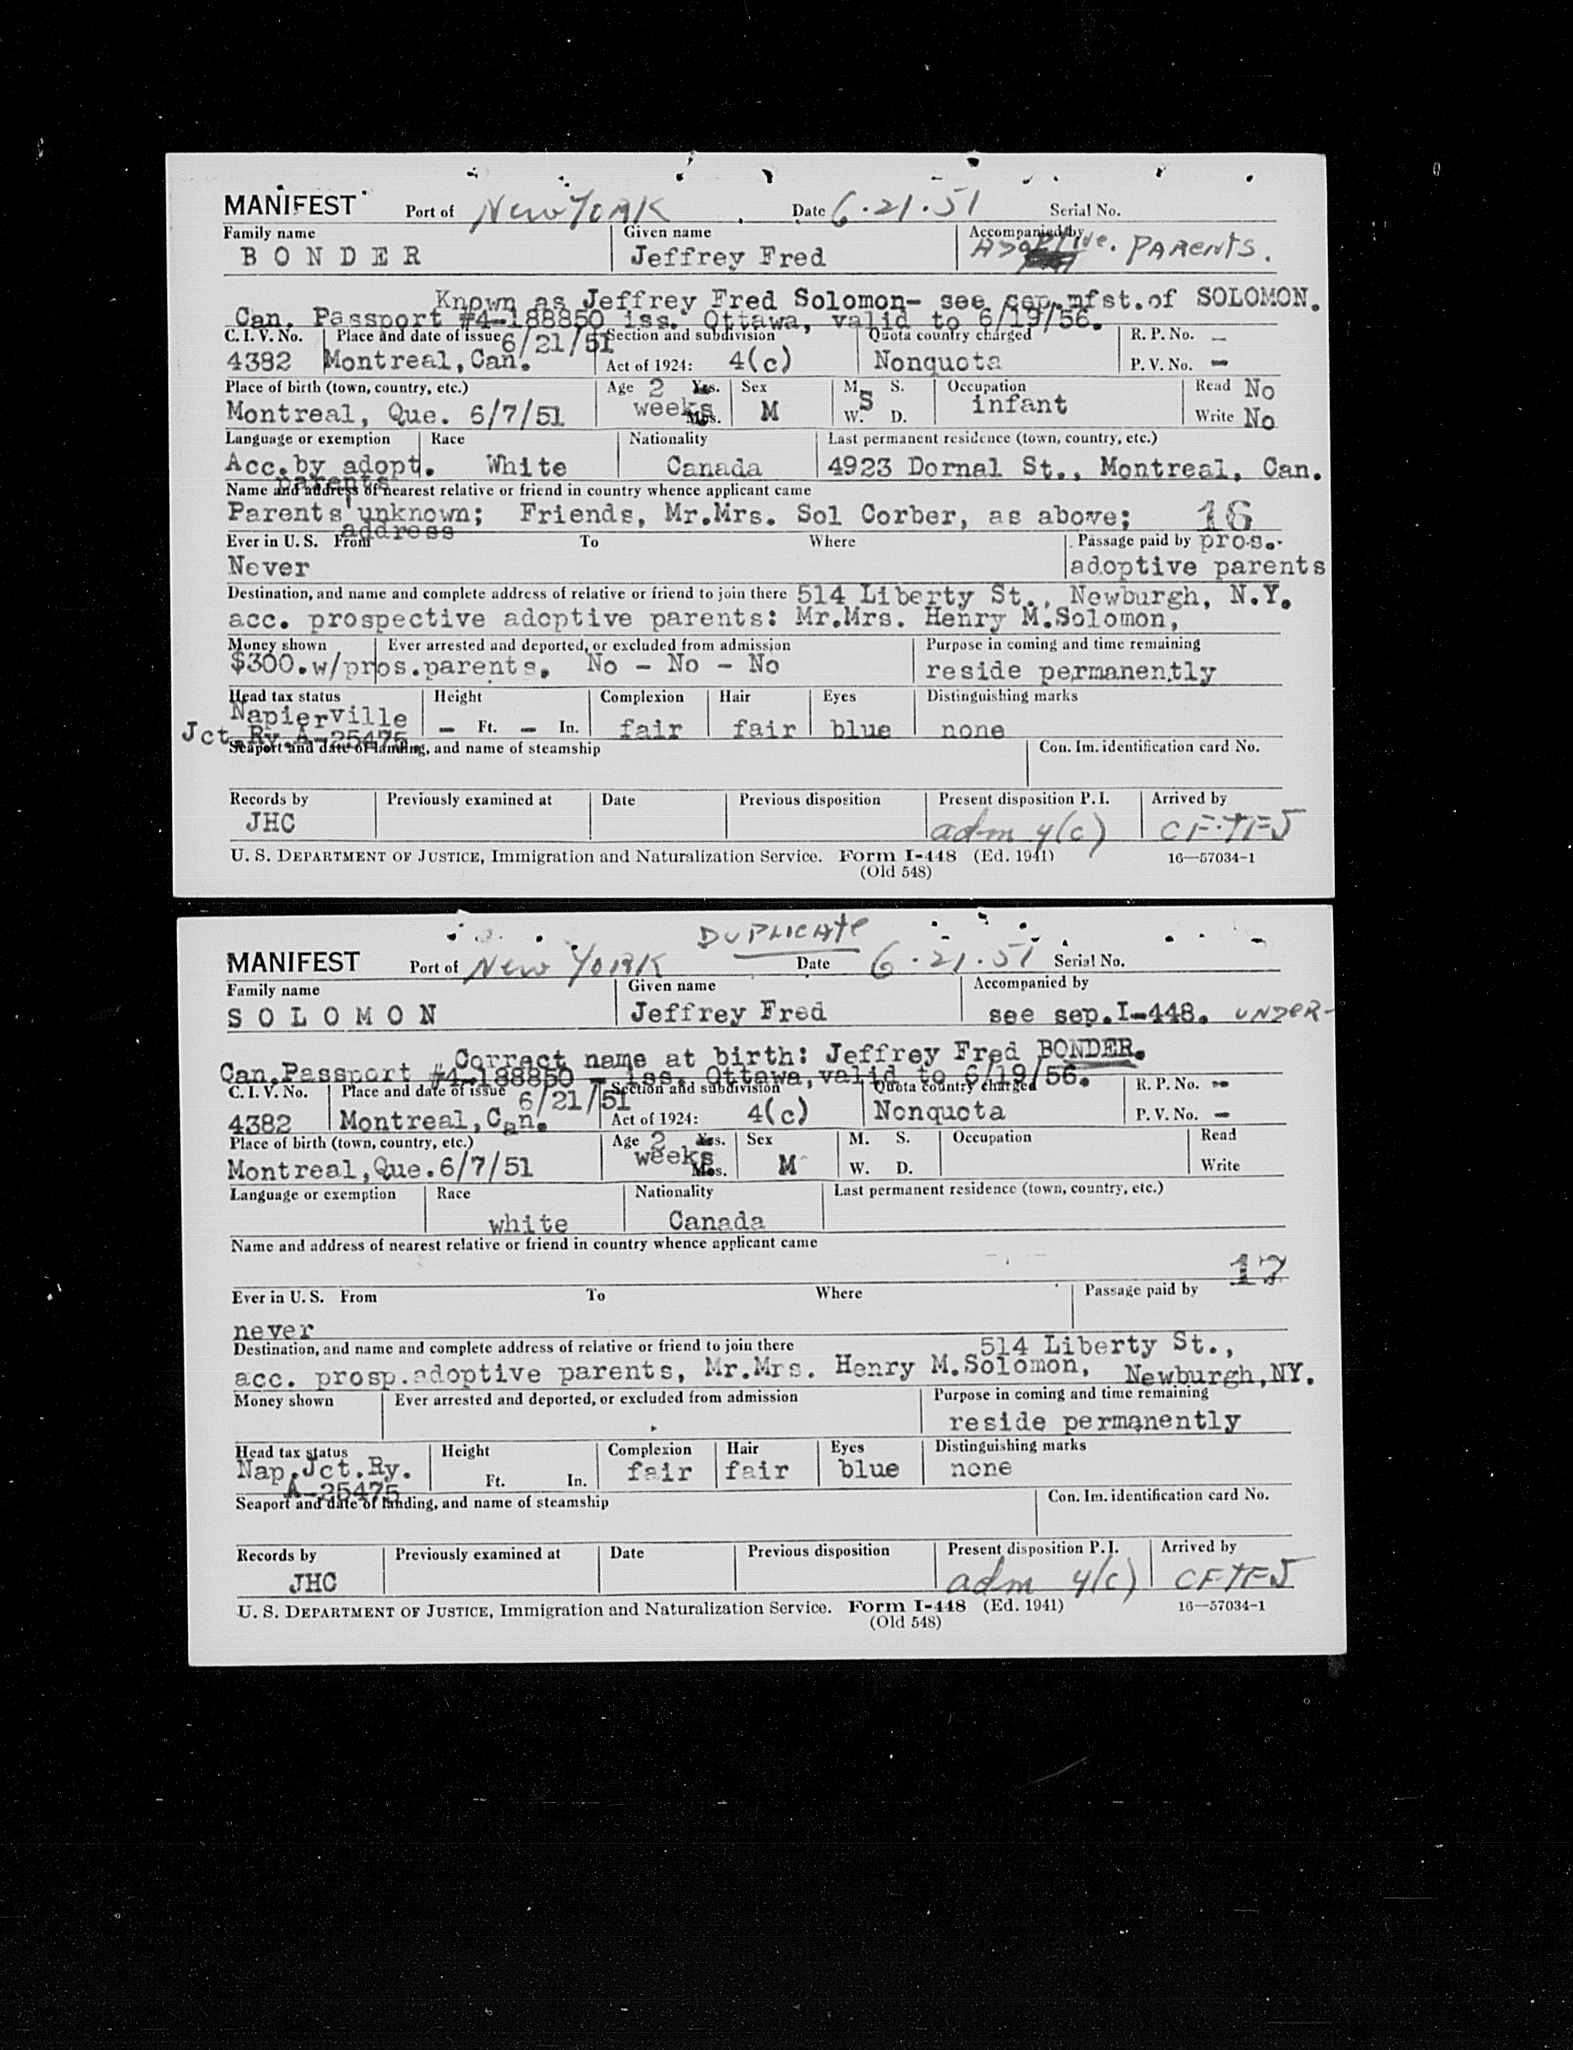 MANIFEST Port of New York Date 6.21.51 Serial No.
Family name Given name Accompanied by
BONDER Jeffrey Fred Adoptive. PARENTS.
Known as Jeffrey Fred Solomon- see sep.mfst.of SOLOMON.
Can. Passport #4-188850 iss. Ottawa, valid to 6/19/56.
C. I. V. No. Place and date of issue 6/21/51 Section and subdivision Quota country charged R. P. No. -
4382 Montreal, Can. Act of 1924: 4(c) Nonquota P. V. No. -
Place of birth (town, country, etc.) Age 2 Yrs. Sex M. S. Occupation Read No
Montreal, Que. 6/7/51 weeks Mos. M S W. D. infant Write No
Language or exemption Race Nationality Last permanent residence (town, country, etc.)
Acc.by adopt. White Canada 4923 Dornal St., Montreal, Can.
parents
Name and address of nearest relative or friend in country whence applicant came
Parents' unknown; Friends, Mr.Mrs. Sol Corber, as above; 16
address
Ever in U. S. From To Where Passage paid by pros.-
Never adoptive parents
Destination, and name and complete address of relative or friend to join there 514 Liberty St., Newburgh, N.Y.
acc. prospective adoptive parents: Mr.Mrs. Henry M.Solomon,
Money shown Ever arrested and deported, or excluded from admission Purpose in coming and time remaining
$300.w/pros.parents. No - No - No reside permanently
Head tax status Height Complexion Hair Eyes Distinguishing marks
Napierville - Ft. - In. fair fair blue none
Jct.Ry.A-25475.
Seaport and date of landing, and name of steamship Con. Im. identification card No.
Records by Previously examined at Date Previous disposition Present disposition P. I. Arrived by
JHC adm 4(c)
U. S. DEPARTMENT OF JUSTICE, Immigration and Naturalization Service. Form I-448 (Ed. 1941) 16—57034-1
(Old 548)
DUPLICATE
MANIFEST Port of New York Date 6.21.51 Serial No.
Family name Given name Accompanied by
SOLOMON Jeffrey Fred see sep.I-448. UNDER-
Correct name at birth: Jeffrey Fred BONDER.
Can.Passport #4-188850 - iss. Ottawa, valid to 6/19/56.
C. I. V. No. Place and date of issue 6/21/51 Section and subdivision Quota country charged R. P. No. -
4382 Montreal, Can. Act of 1924: 4(c) Nonquota P. V. No. -
Place of birth (town, country, etc.) Age 2 Yrs. Sex M. S. Occupation Read
Montreal,Que.6/7/51 weeks Mos. M W. D. Write
Language or exemption Race Nationality Last permanent residence (town, country, etc.)
white Canada
Name and address of nearest relative or friend in country whence applicant came
17
Ever in U. S. From To Where Passage paid by
never
Destination, and name and complete address of relative or friend to join there 514 Liberty St.,
acc. prosp.adoptive parents, Mr.Mrs. Henry M.Solomon, Newburgh,NY.
Money shown Ever arrested and deported, or excluded from admission Purpose in coming and time remaining
reside permanently
Head tax status Height Complexion Hair Eyes Distinguishing marks
Nap.Jct.Ry. Ft. In. fair fair blue none
A-25475
Seaport and date of landing, and name of steamship Con. Im. identification card No.
Records by Previously examined at Date Previous disposition Present disposition P. I. Arrived by
JHC adm 4(c)
U. S. DEPARTMENT OF JUSTICE, Immigration and Naturalization Service. Form I-448 (Ed. 1941) 16—57034-1
(Old 548)